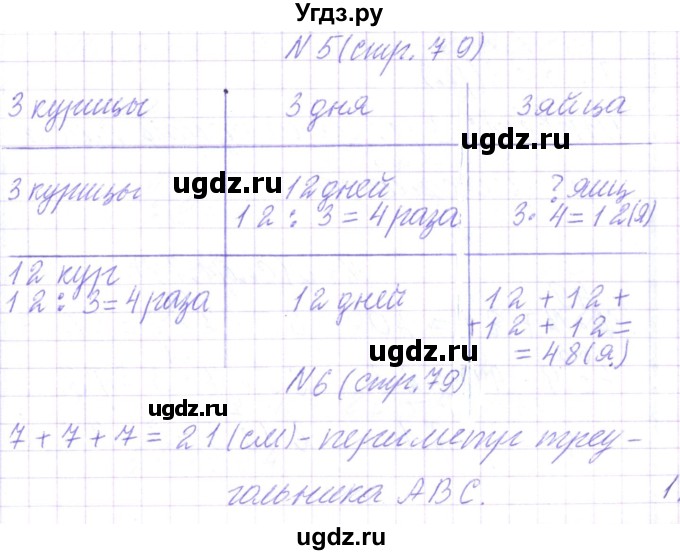 Угдз.ру
N 5 (стр. 79)
3 курицы 3 дня 3 яйца
ugdz.ru
3 курицы 12 дней ? яиц
ugdz.ru
12 : 3 = 4 раза 3 · 4 = 12 (я)
ugdz.ru
12 кур
12 : 3 = 4 раза 12 дней 12 + 12 +
+ 12 + 12 =
ugdz.ru
= 48 (я.)
N 6 (стр. 79)
ugdz.ru
ugdz.ru
7 + 7 + 7 = 21 (см) - периметр треу-
гольника ABC.
1.
ugdz.ru
ugdz.ru